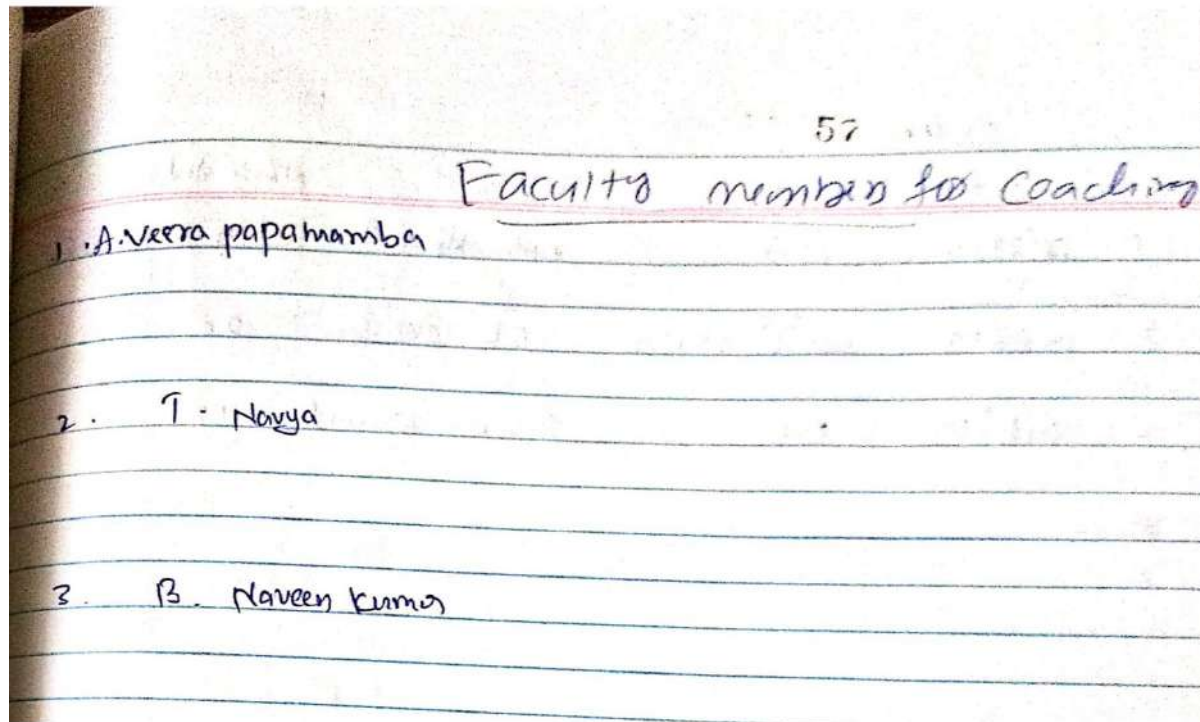 57
Faculty members for Coaching
1. A. Veera papamamba
2. T. Navya
3. B. Naveen Kumar